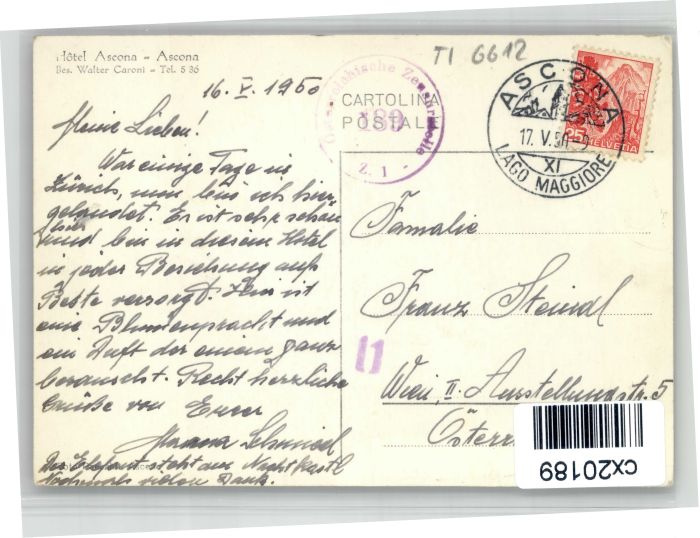 Hôtel Ascona - Ascona
Bes. Walter Caroni - Tel. 5 36
TI 6612
16. V. 1950
CARTOLINA
POSTALE
Österreichische Zensurstelle
189
Z. 1
ASCONA
17. V. 50
XI
LAGO MAGGIORE
25
HELVETIA
Meine Lieben!
War einige Tage in
Zürich, nun bin ich hier
gelandet. Er ist sehr schön
hier
und bin in diesem Hotel
in jeder Beziehung aufs
Beste versorgt. Hier ist
eine Blumenpracht und
ein Duft der einem ganz
berauscht. Recht herzliche
Grüße von Eurer
Schmid
Der Elefant steht am Nachtkastl
Nochmals vielen Dank.
Familie
Franz Steindl
Wien, II. Ausstellungsstr. 5
Österr
11
cx20189